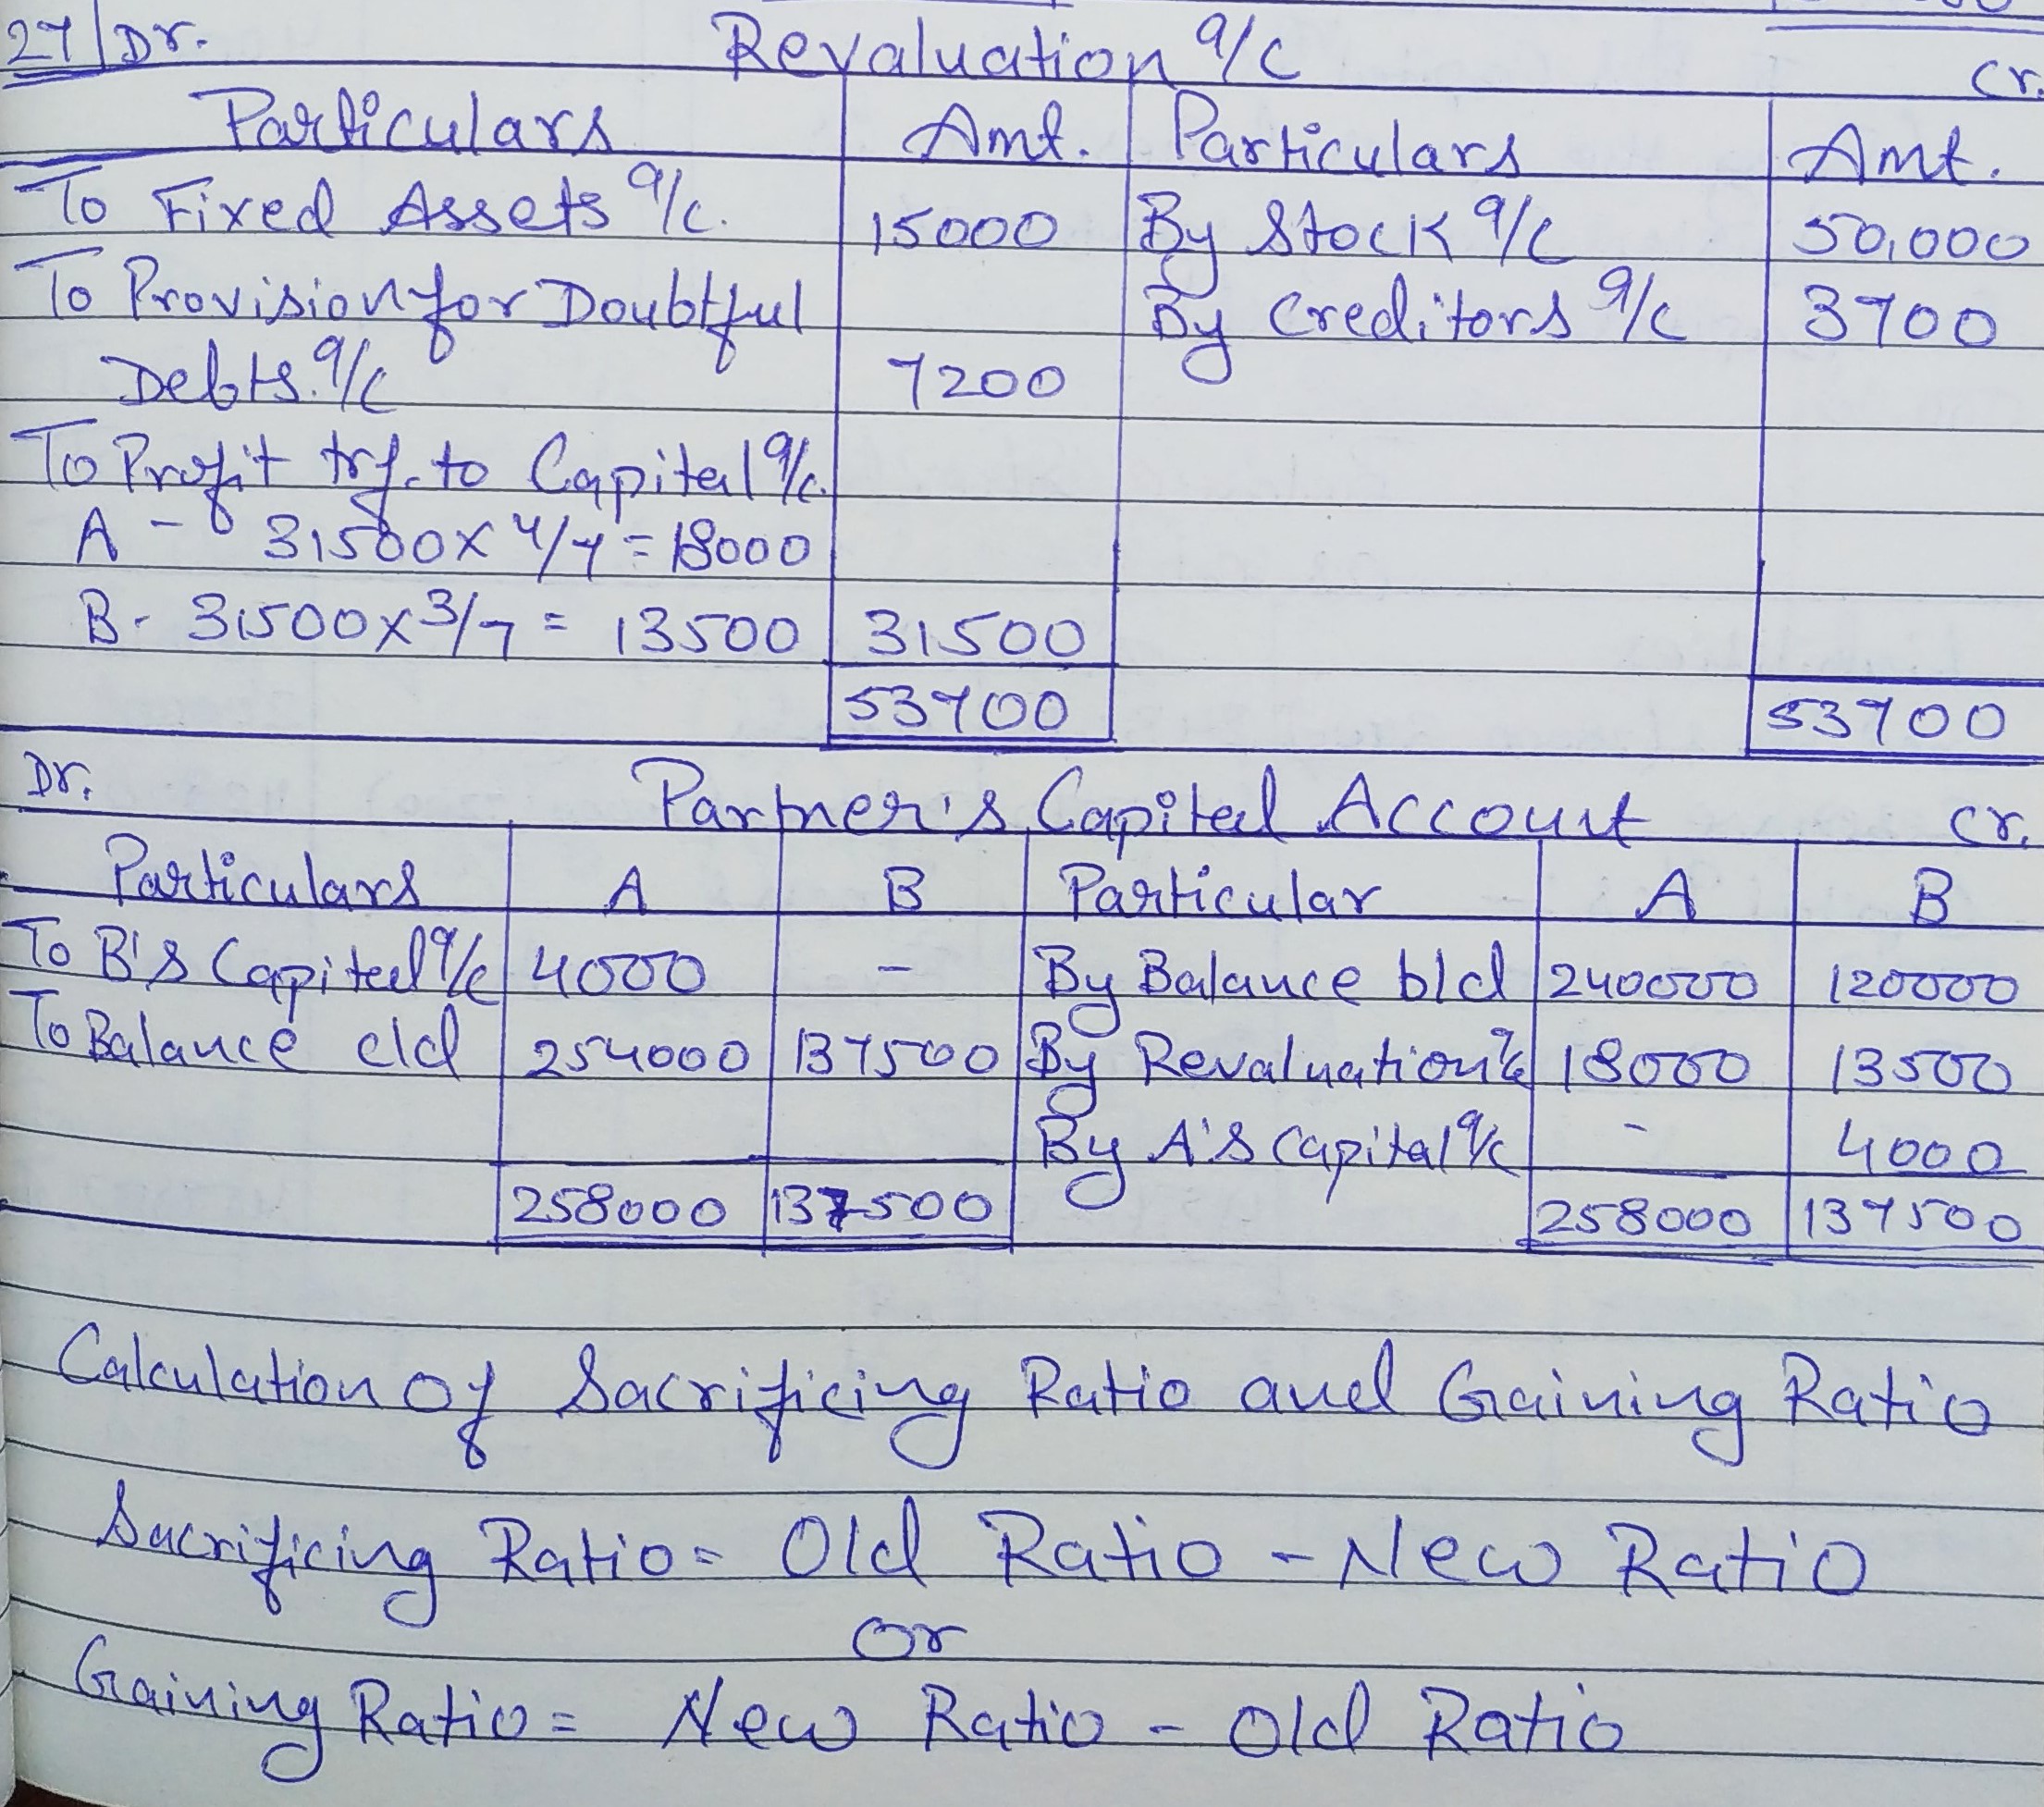 27 Dr. Revaluation a/c Cr.
Particulars Amt. Particulars Amt.
To Fixed Assets a/c. 15000 By Stock a/c 50,000
To Provision for Doubtful By Creditors a/c 3700
Debts. a/c 7200
To Profit trf. to Capital a/c.
A - 31500 x 4/7 = 18000
B - 31500 x 3/7 = 13500 31500
53700 53700
Dr. Partner's Capital Account Cr.
Particulars A B Particular A B
To B's Capital a/c 4000 - By Balance b/d 240000 120000
To Balance c/d 254000 137500 By Revaluation a/c 18000 13500
By A's Capital a/c - 4000
258000 137500 258000 137500
Calculation of Sacrificing Ratio and Gaining Ratio
Sacrificing Ratio = Old Ratio - New Ratio
or
Gaining Ratio = New Ratio - Old Ratio